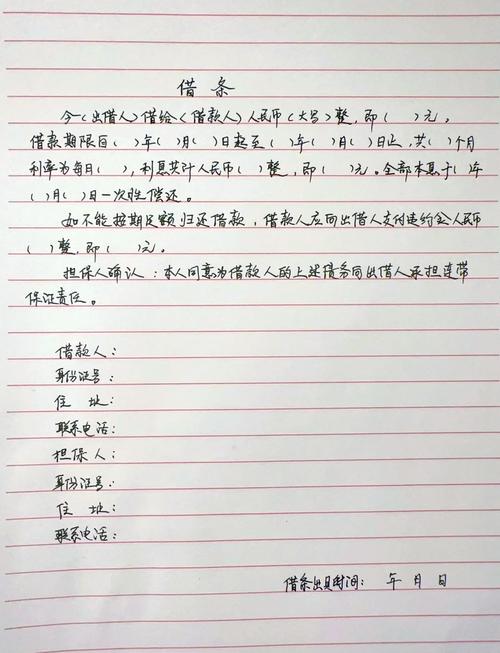 借条
今(出借人)借给(借款人)人民币(大写)整,即( )元,
借款期限自( )年( )月( )日起至( )年( )月( )日止,共( )个月
利率为每月( ),利息共计人民币( )整,即( )元。全部本息于( )年
( )月( )日一次性偿还。
如不能按期足额归还借款,借款人应向出借人支付违约金人民币
( )整,即( )元。
担保人确认:本人同意为借款人的上述债务向出借人承担连带
保证责任。
借款人:
身份证号:
住 址:
联系电话:
担保人:
身份证号:
住 址:
联系电话:
借条出具时间: 年 月 日